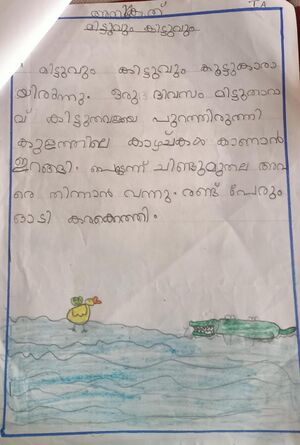 അനികേത്
T A
മിട്ടുവും കിട്ടുവും
മിട്ടുവും കിട്ടുവും കൂട്ടുകാരാ
യിരുന്നു. ഒരു ദിവസം മിട്ടുതാറാ
വ് കിട്ടുതവളയെ പുറത്തിരുത്തി
കുളത്തിലെ കാഴ്ചകൾ കാണാൻ
ഇറങ്ങി. പെട്ടന്ന് ചീങ്കണ്ണിമുതല അവ
രെ തിന്നാൻ വന്നു. രണ്ട് പേരും
ഓടി കരക്കെത്തി.